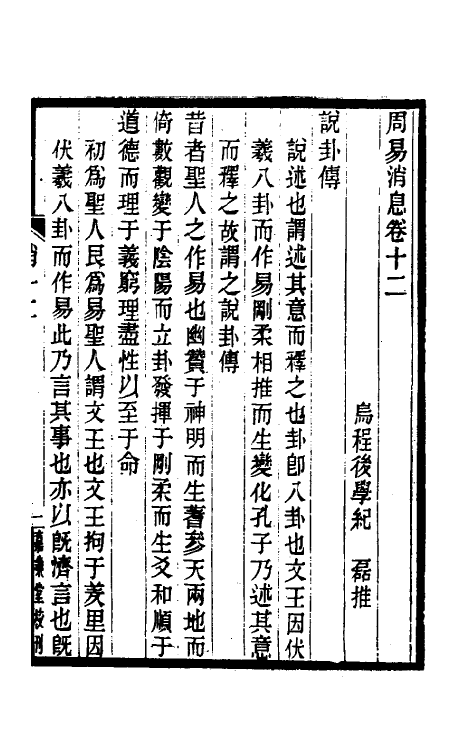 周易消息卷十二
烏程後學紀　磊推
說卦傳
說述也謂述其意而釋之也卦卽八卦也文王因伏
羲八卦而作易剛柔相推而生變化孔子乃述其意
而釋之故謂之說卦傳
昔者聖人之作易也幽贊于神明而生蓍參天兩地而
倚數觀變于陰陽而立卦發揮于剛柔而生爻和順于
道德而理于義窮理盡性以至于命
初爲聖人艮爲易聖人謂文王也文王拘于羑里因
伏羲八卦而作易此乃言其事也亦以旣濟言也旣